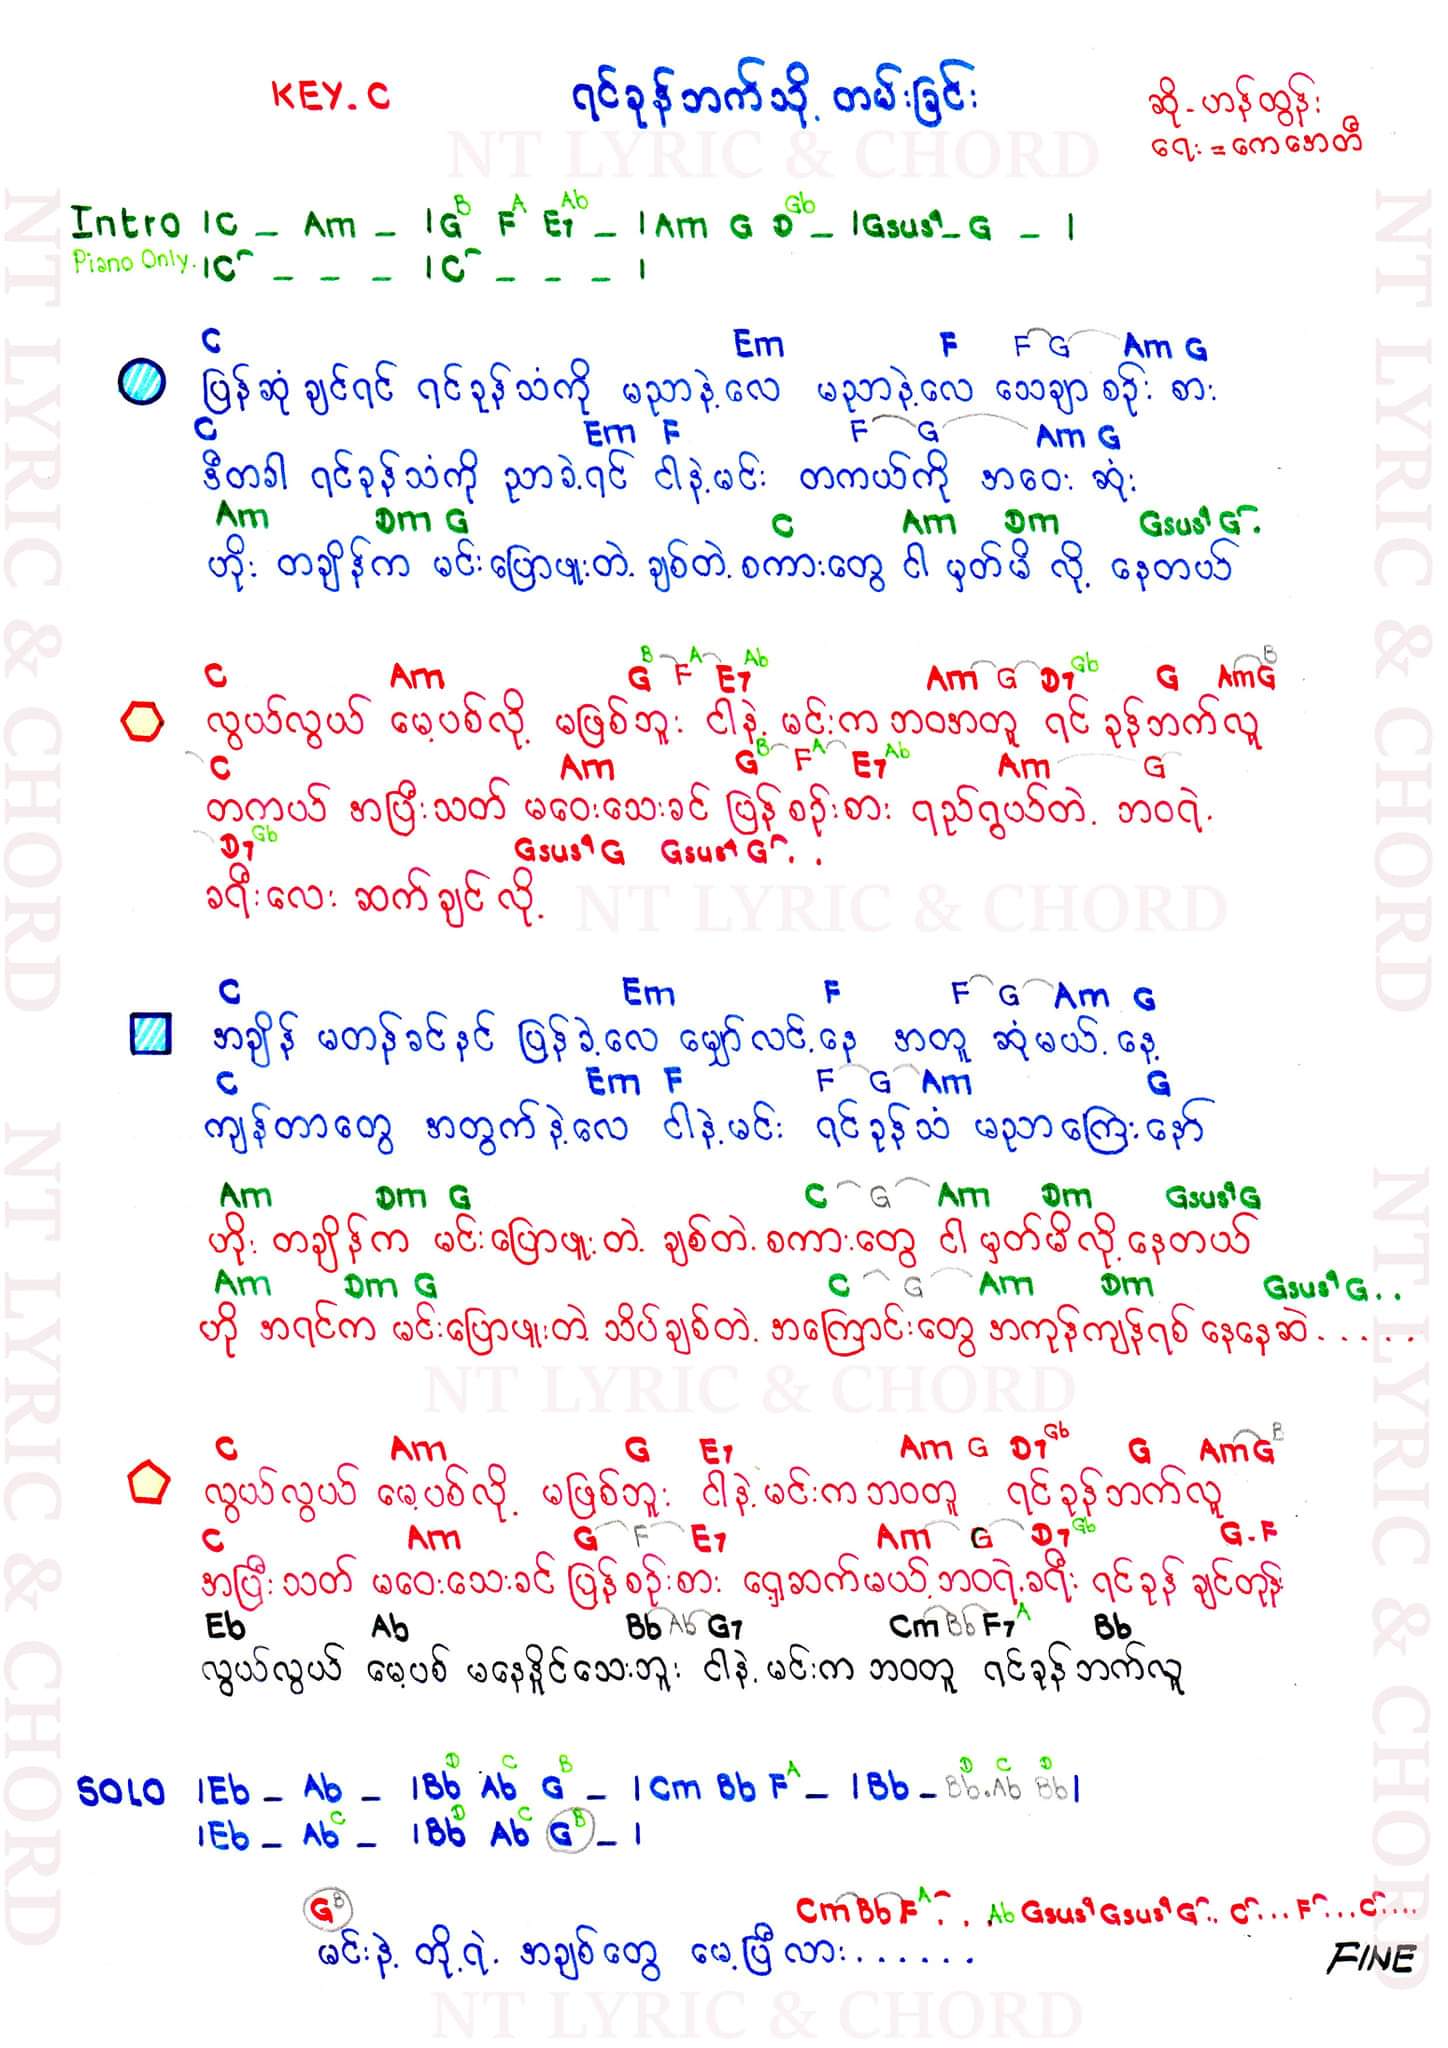 KEY. C
ရင်ခုန်ဘက်သို့ တမ်းခြင်း
ဆို - ဟန်ထွန်း
ရေး = ကေအေတီ
NT LYRIC & CHORD
Intro |C _ Am _ |G B F A E7 Ab _ |Am G D Gb _ |Gsus4 _ G _ |
Piano Only. |C _ _ _ |C _ _ _ |
C Em F F G Am G
ပြန်ဆုံချင်ရင် ရင်ခုန်သံကို မညာနဲ့လေ မညာနဲ့လေ သေချာ စဉ်း စား
C Em F F G Am G
ဒီတခါ ရင်ခုန်သံကို ညာခဲ့ရင် ငါနဲ့မင်း တကယ်ကို အဝေး ဆုံး
Am Dm G C Am Dm Gsus4 G .
ဟိုး တချိန်က မင်းပြောဖူးတဲ့ ချစ်တဲ့စကားတွေ ငါ မှတ်မိ လို့ နေတယ်
C Am G B F A E7 Ab Am G D7 Gb G Am G B
လွယ်လွယ် မေ့ပစ်လို့ မဖြစ်ဘူး ငါနဲ့ မင်းက ဘဝအတူ ရင် ခုန်ဘက်လူ
C Am G B F A E7 Ab Am G
တကယ် အပြီးသတ် မဝေးသေးခင် ပြန်စဉ်းစား ရည်ရွယ်တဲ့ ဘဝရဲ့
D7 Gb Gsus4 G Gsus4 G . .
ခရီးလေး ဆက်ချင်လို့
NT LYRIC & CHORD
C Em F F G Am G
အချိန် မတန်ခင်နင် ပြန်ခဲ့လေ မျှော်လင့်နေ အတူ ဆုံမယ့်နေ့
C Em F F G Am G
ကျန်တာတွေ အတွက်နဲ့လေ ငါနဲ့မင်း ရင်ခုန်သံ မညာကြေးနော်
Am Dm G C G Am Dm Gsus4 G
ဟိုး တချိန်က မင်းပြောဖူးတဲ့ ချစ်တဲ့စကားတွေ ငါ မှတ်မိလို့နေတယ်
Am Dm G C G Am Dm Gsus4 G . .
ဟို အရင်က မင်းပြောဖူးတဲ့ သိပ်ချစ်တဲ့ အကြောင်းတွေ အကုန်ကျန်ရစ် နေနေဆဲ . . . . .
NT LYRIC & CHORD
C Am G E7 Am G D7 Gb G Am G B
လွယ်လွယ် မေ့ပစ်လို့ မဖြစ်ဘူး ငါနဲ့မင်းက ဘဝတူ ရင်ခုန်ဘက်လူ
C Am G F E7 Am G D7 Gb G - F
အပြီးသတ် မဝေးသေးခင် ပြန်စဉ်းစား ရှေ့ဆက်မယ့်ဘဝရဲ့ခရီး ရင်ခုန် ချင်တုန်း
Eb Ab Bb Ab G7 Cm Bb F7 A Bb
လွယ်လွယ် မေ့ပစ် မနေနိုင်သေးဘူး ငါနဲ့ မင်းက ဘဝတူ ရင်ခုန်ဘက်လူ
SOLO |Eb _ Ab _ |Bb D Ab C G B _ |Cm Bb F A _ |Bb _ Bb D . Ab C Bb D |
|Eb _ Ab C _ |Bb D Ab C G B _ |
G B Cm Bb F A . . . Ab Gsus4 Gsus4 G . . C . . . F . . . C . . . .
မင်းနဲ့ တို့ရဲ့ အချစ်တွေ မေ့ပြီလား . . . . . .
FINE
NT LYRIC & CHORD
NT LYRIC & CHORD
NT LYRIC & CHORD
NT LYRIC & CHORD
NT LYRIC & CHORD